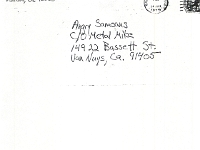 Angry Samoans
C/O Metal Mike
14922 Bassett St.
Van Nuys, Ca. 91405